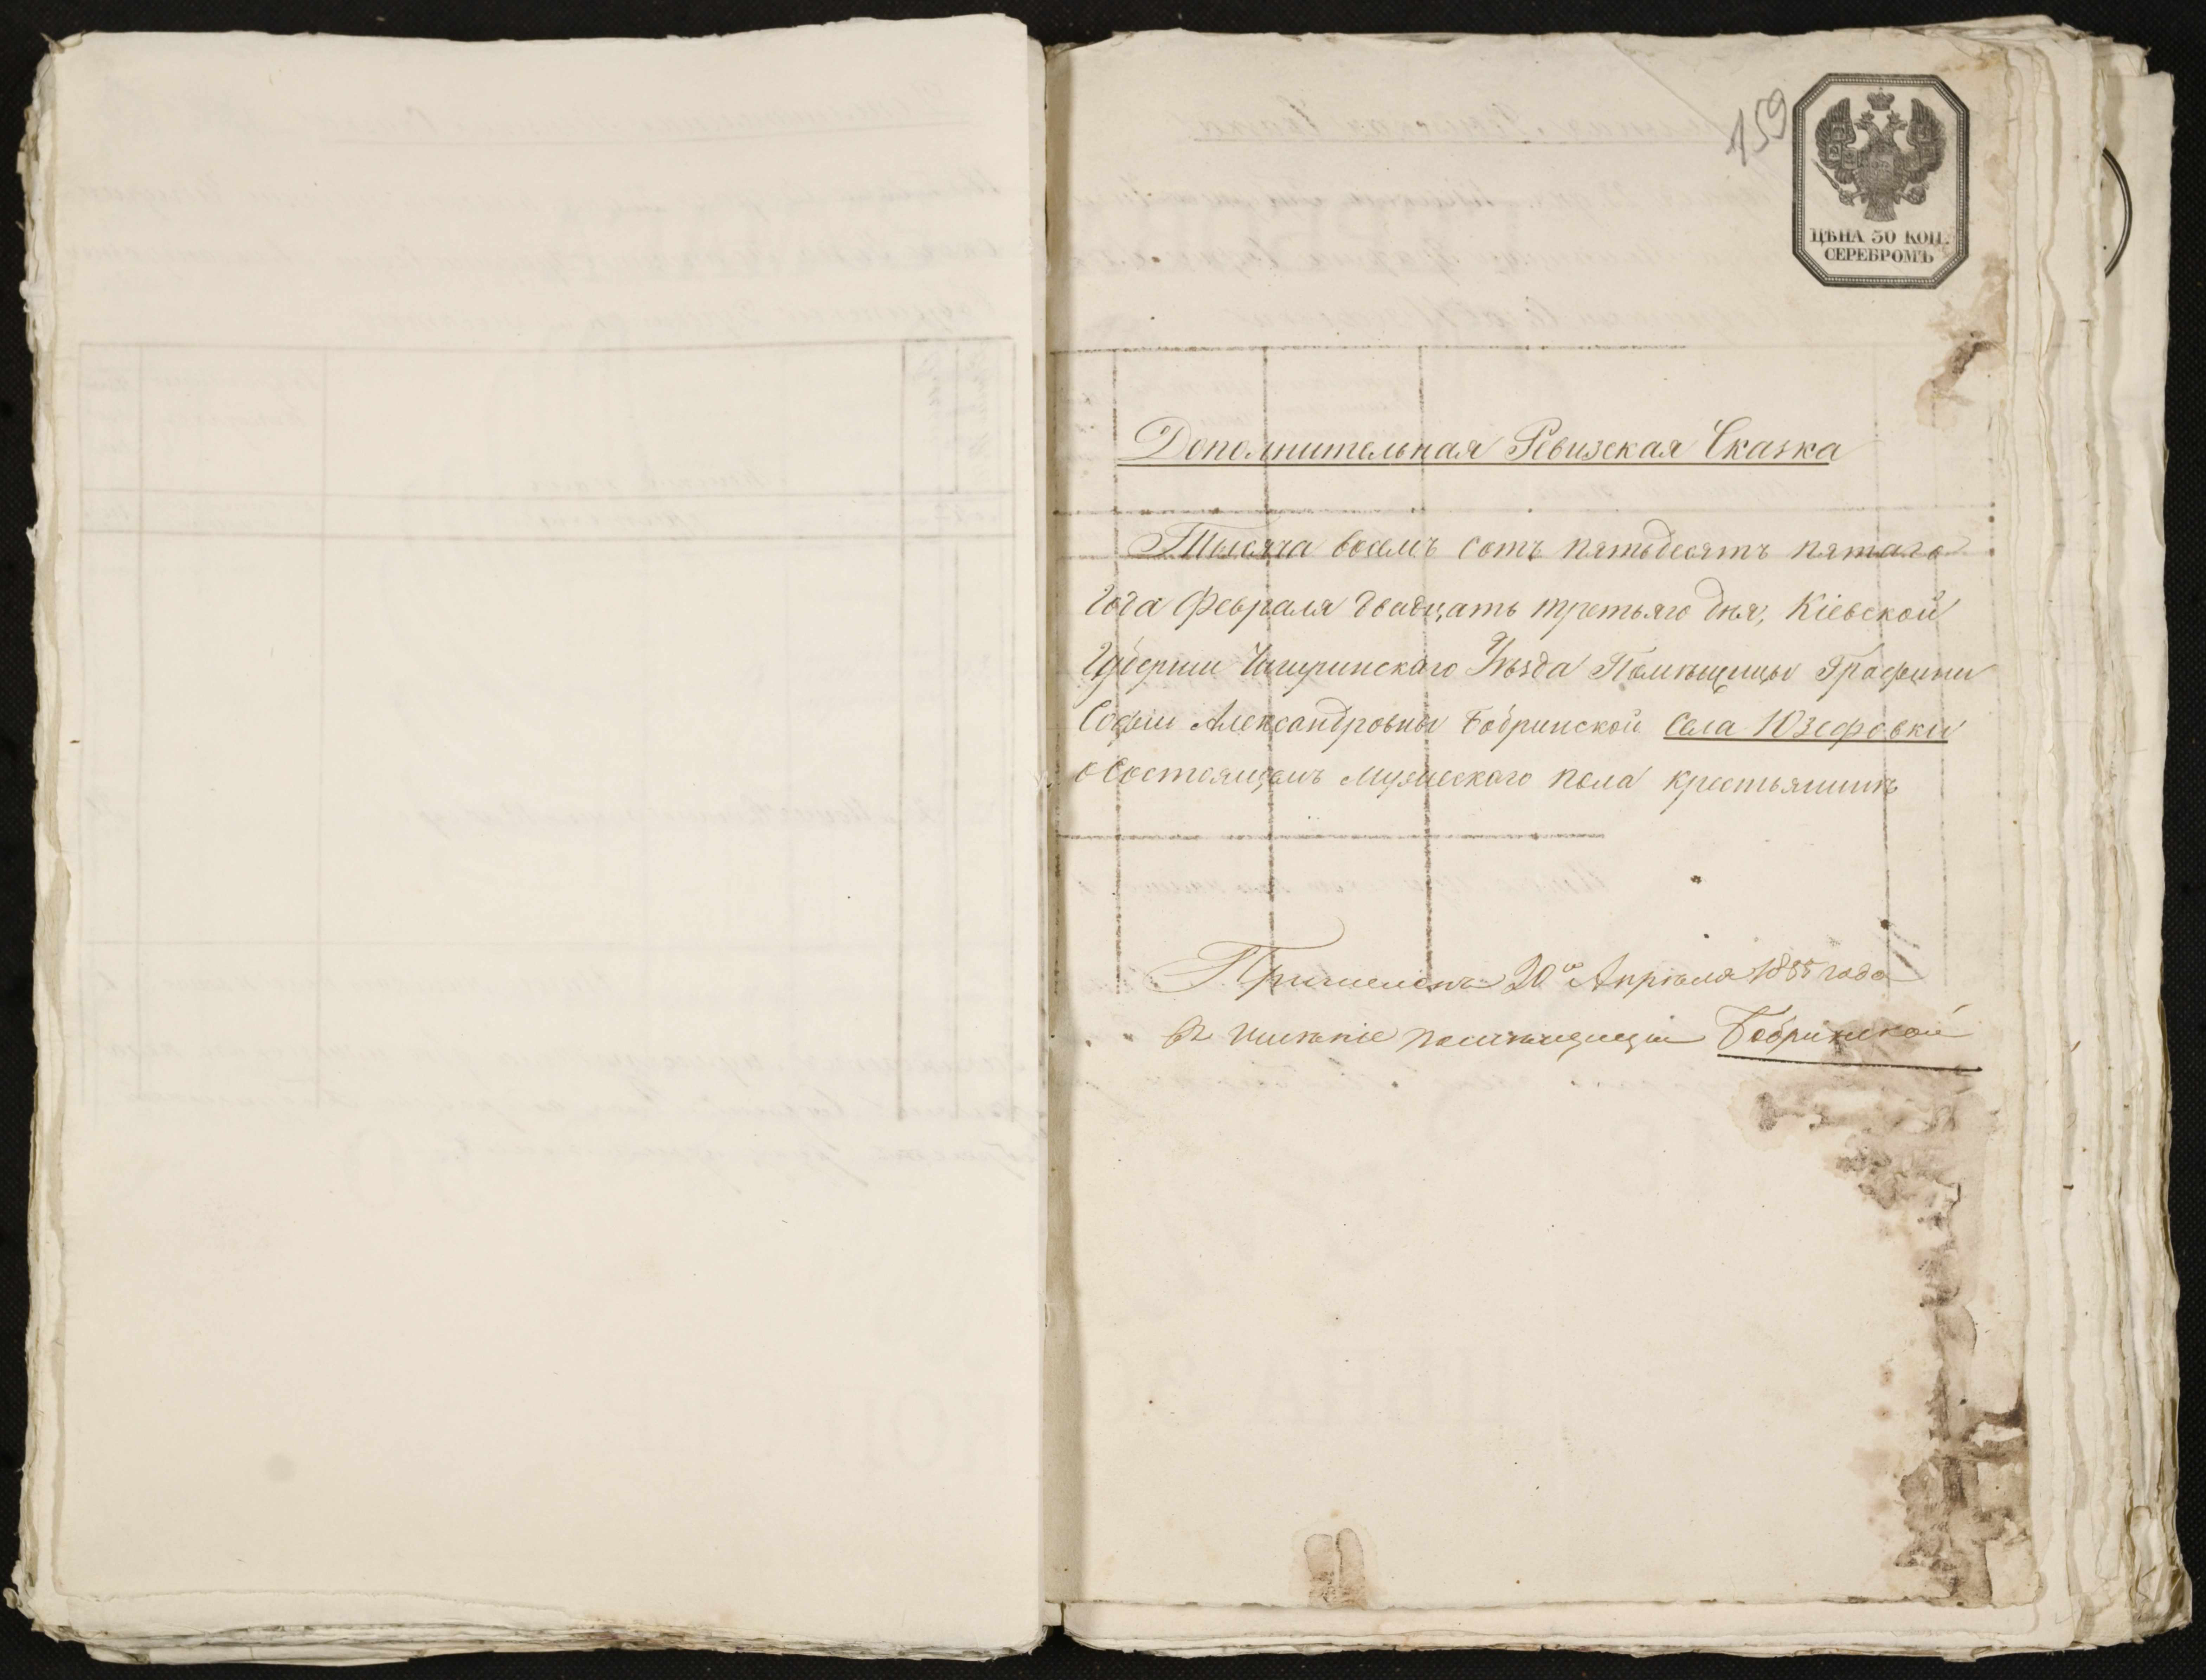 159
ЦѢНА 30 КОП.
СЕРЕБРОМЪ
Дополнительная Ревизская Сказка
Тысяча восемъ сотъ пятьдесятъ пятаго
года Февраля двадцать третьяго дня, Кіевской
Губерніи Чигиринскаго Уѣзда Помѣщицы Графини
Софіи Александровны Бобринской Села Юзефовки
о состоящемъ мужескаго пола крестьянинѣ
20го Апрѣля 1855 года
въ имѣніе помѣщицы Бобринской